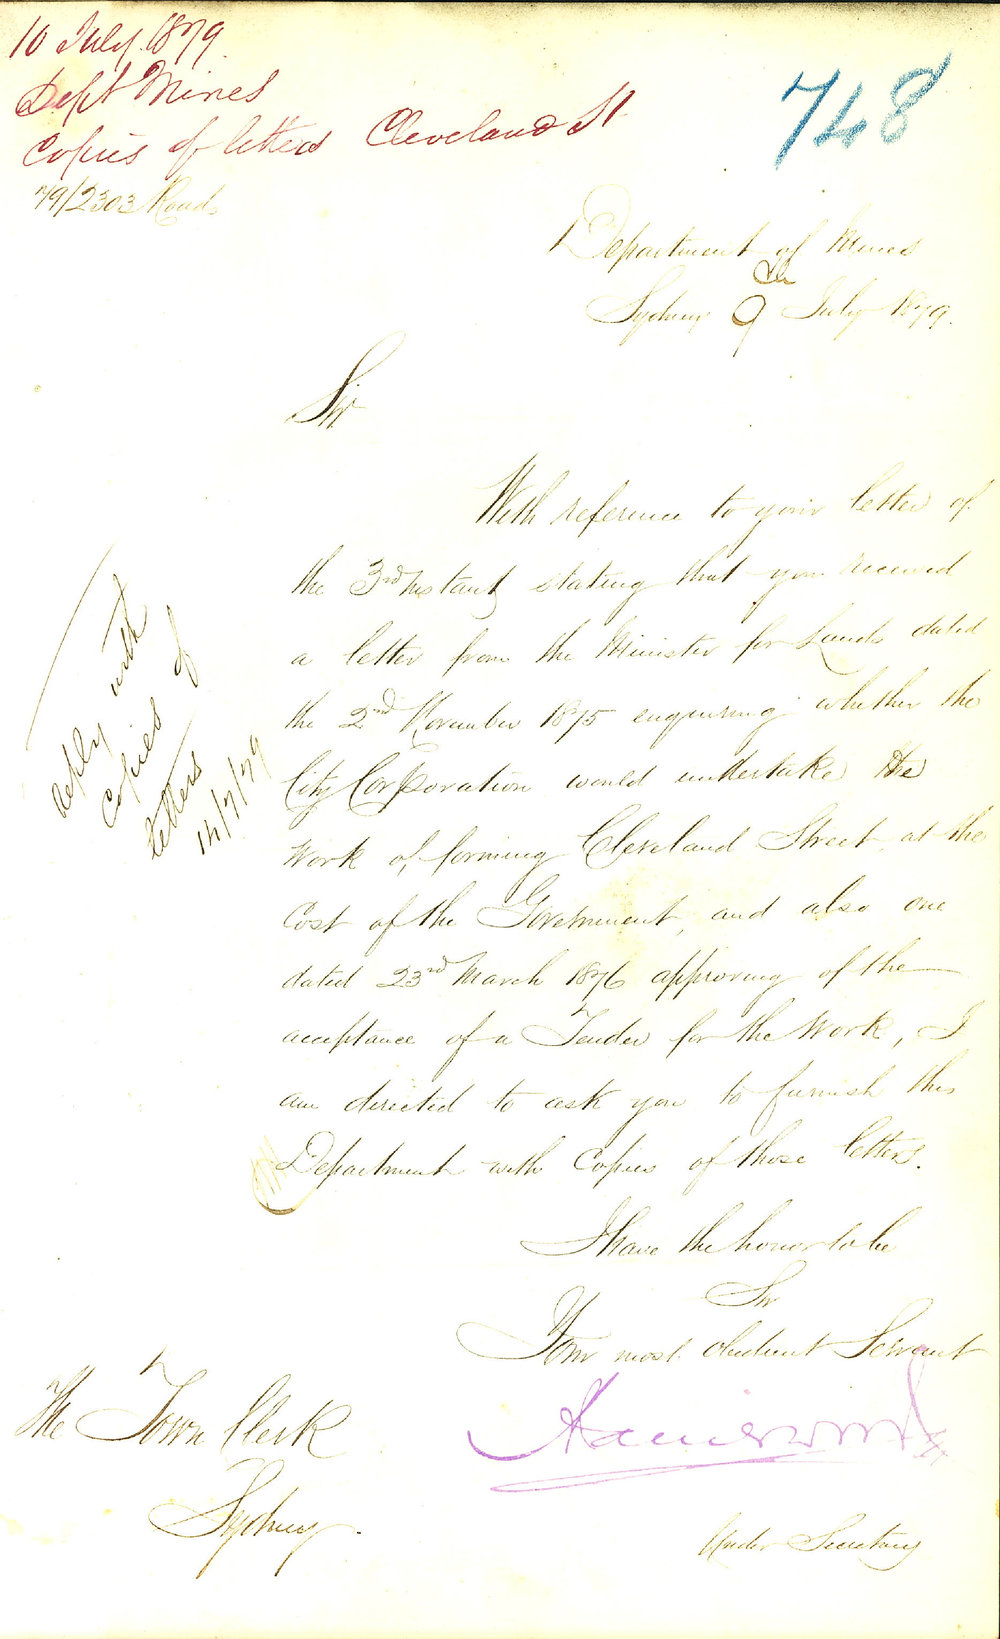 10 July 1879
Dept Mines
Copies of letters Cleveland St
748
79/2303 Roads
Department of Mines
Sydney 9th July 1879.
Sir
With reference to your letter of
the 3rd Instant, stating that you received
a letter from the Minister for Lands dated
the 2nd November 1875 enquiring whether the
City Corporation would undertake the
Work of forming Cleveland Street, at the
Cost of the Government, and also one
dated 23rd March 1876 approving of the
acceptance of a Tender for the Work, I
am directed to ask you to furnish this
Department with Copies of those letters.
reply with
copies of
letters
14/7/79
I have the honor to be
Sir
Your most obedient Servant
Under Secretary
The Town Clerk
Sydney.